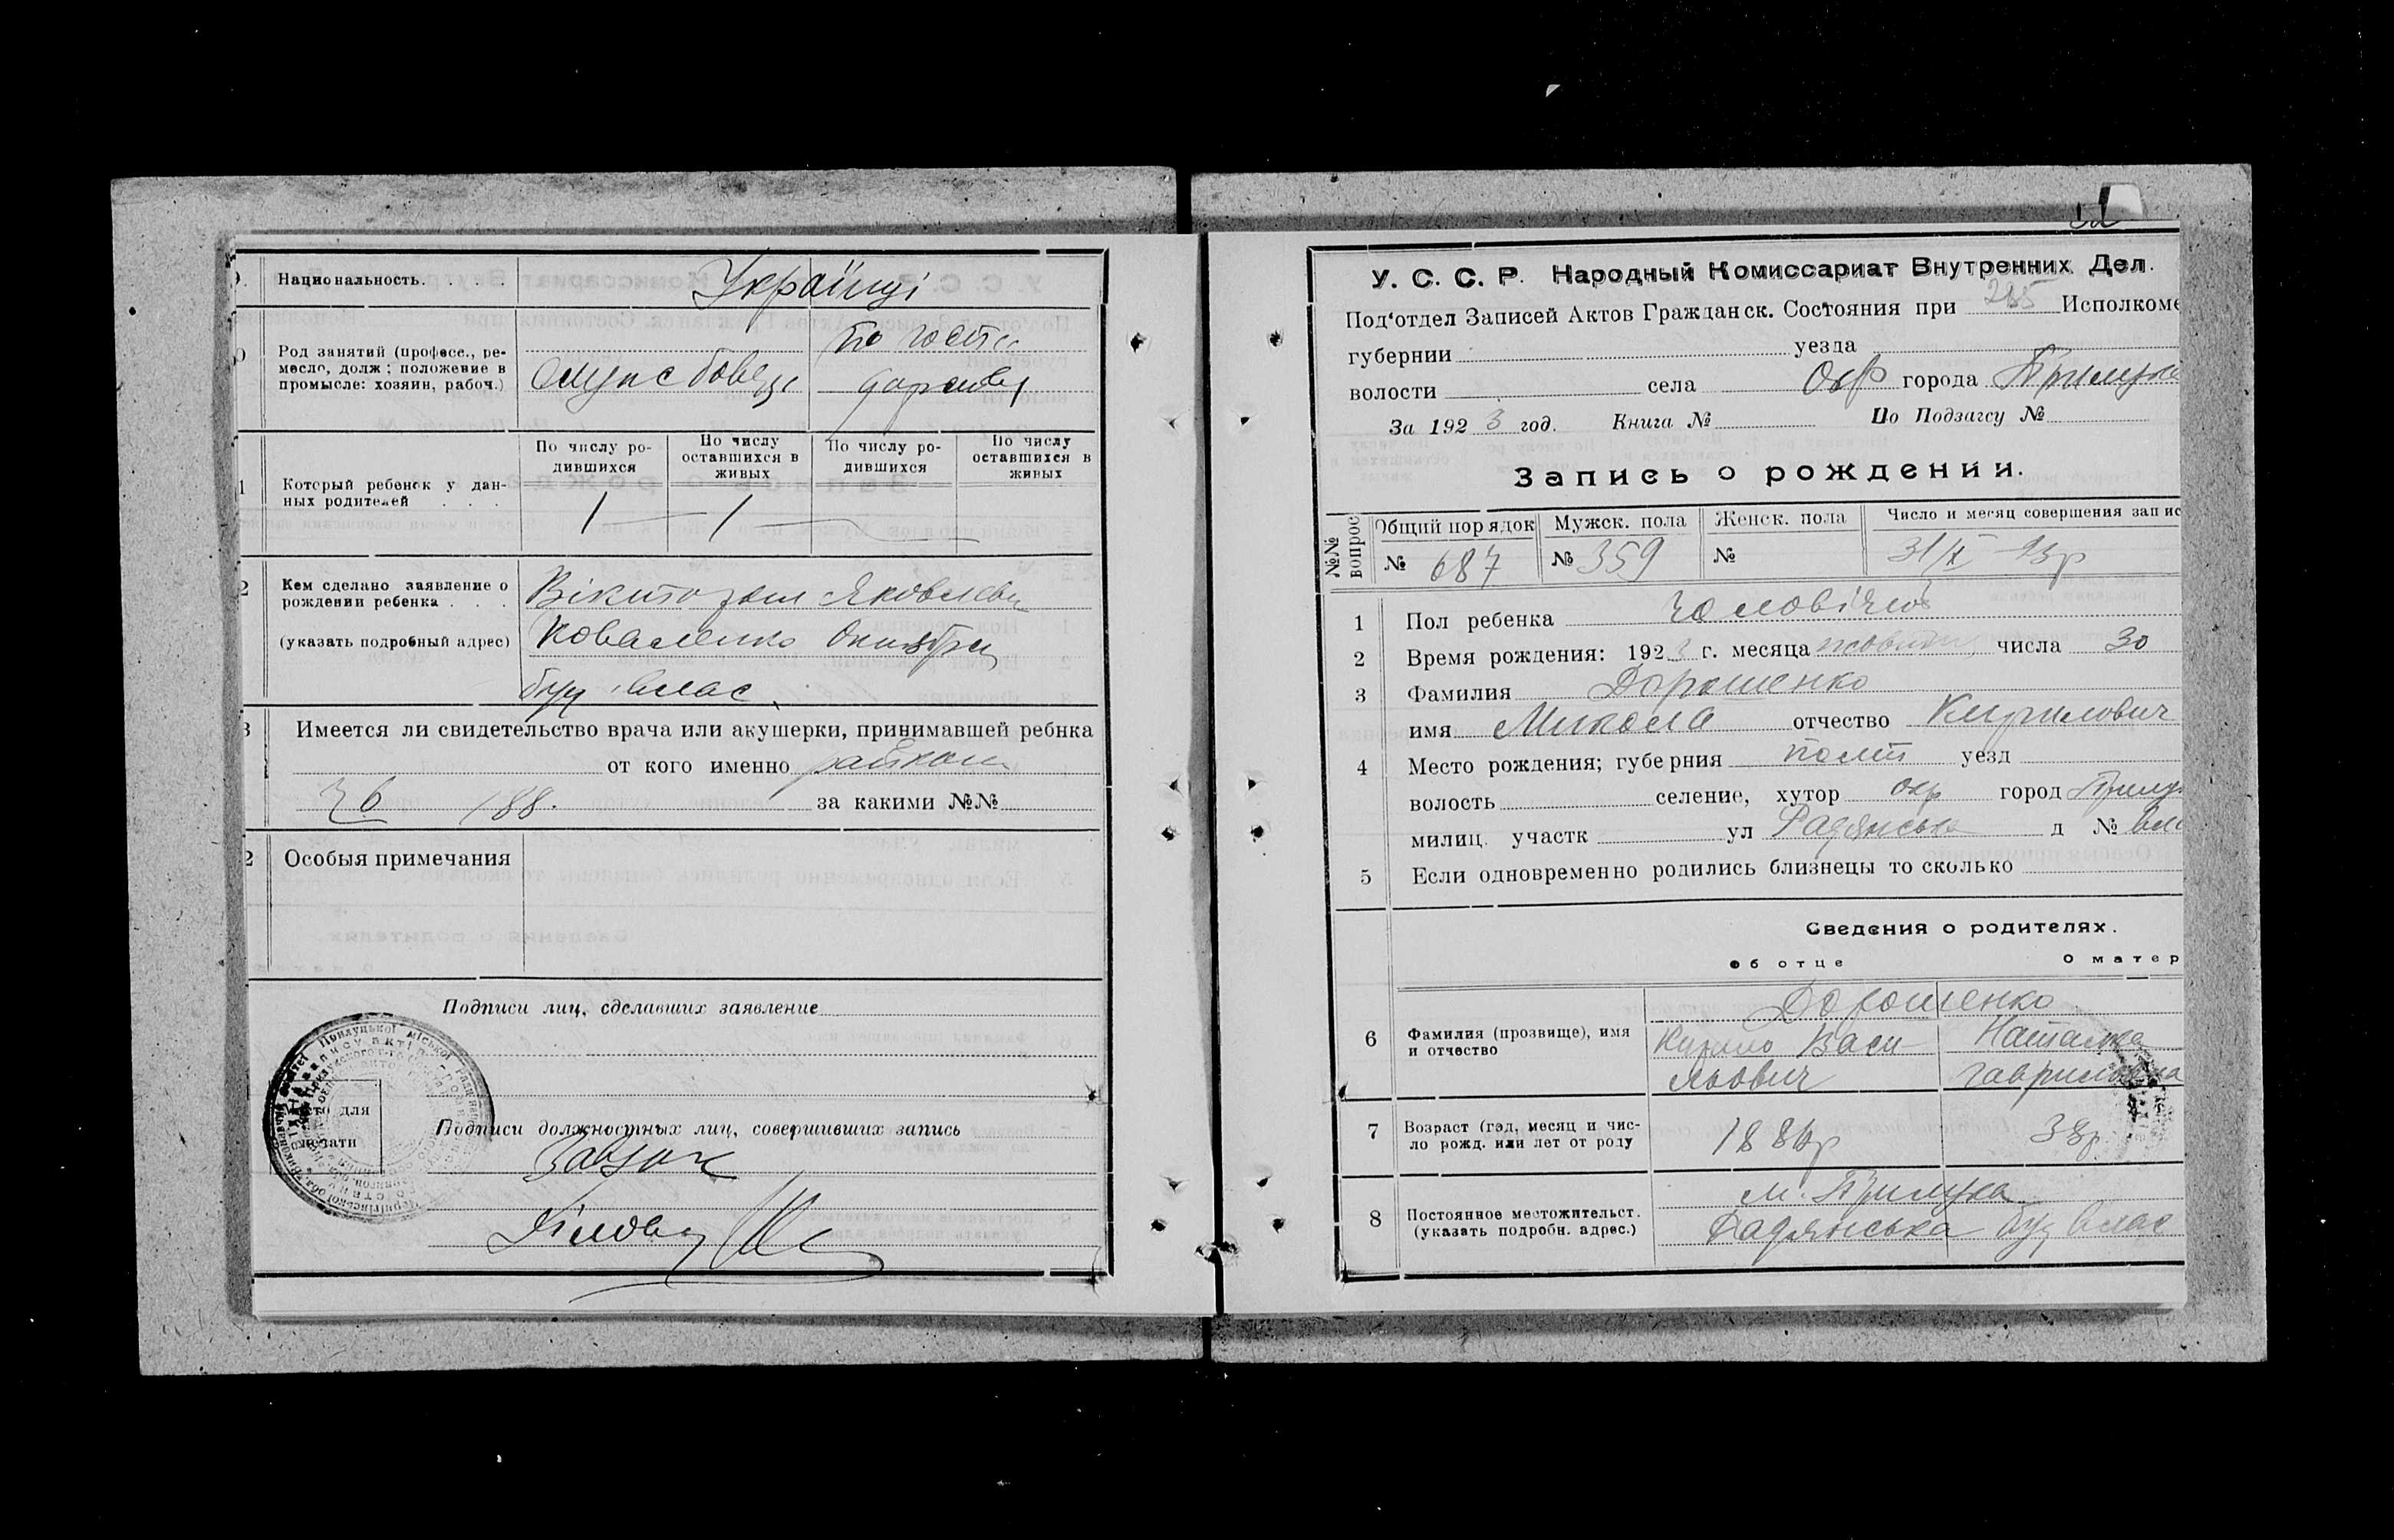 9. Национальность. . . . Українці
Род занятий (професс., ре-
месло, долж; положение в
промысле: хозяин, рабоч.)
По числу ро-
дившихся
По числу
оставшихся в
живых
По числу ро-
дившихся
По числу
оставшихся в
живых
Который ребенок у дан-
ных родителей . . . 1 — 1 —
Кем сделано заявление о
рождении ребенка . . .
(указать подробный адрес)
Коваленко
буд. влас.
Имеется ли свидетельство врача или акушерки, принимавшей ребнка
от кого именно
188. за какими №№
Особыя примечания
Подписи лиц, сделавших заявление
Место для
печати
Подписи должностных лиц, совершивших запись
Завзаг
Діловод
У. С. С. Р. Народный Комиссариат Внутренних Дел.
Под'отдел Записей Актов Гражданск. Состояния при Исполкоме
губернии уезда
волости села Окр города Прилука
За 1923 год. Книга № По Подзагсу №
Запись о рождении.
№№ вопрос
Общий порядок Мужск. пола Женск. пола Число и месяц совершения запис
№ 687 № 359 № 31/X 23р
1 Пол ребенка чоловічої
2 Время рождения: 1923 г. месяца жовтня числа 30
3 Фамилия Дорошенко
имя Микола отчество Кирилович
4 Место рождения; губерния Полт уезд
волость селение, хутор окр город Прилу
милиц. участк ул Радянська д № вла
5 Если одновременно родились близнецы то сколько
Сведения о родителях.
об отце О матер
Дорошенко
6 Фамилия (прозвище), имя
и отчество
Кирило Васи-
льович
Наталка
Гавриловна
7 Возраст (год, месяц и чис-
ло рожд. или лет от роду 38р.
8 Постоянное местожительст.
(указать подробн. адрес.)
м. Прилука
Радянська буд влас